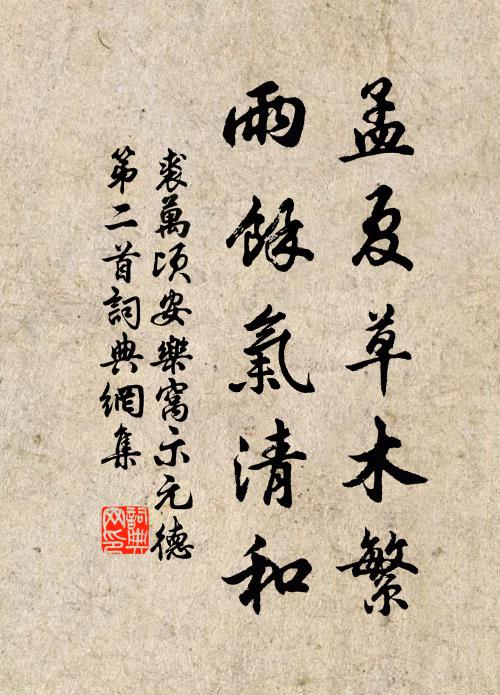 孟夏草木繁
雨餘氣清和
裘萬頃安樂窩示元德
第二首詞典網集
詞典
网印